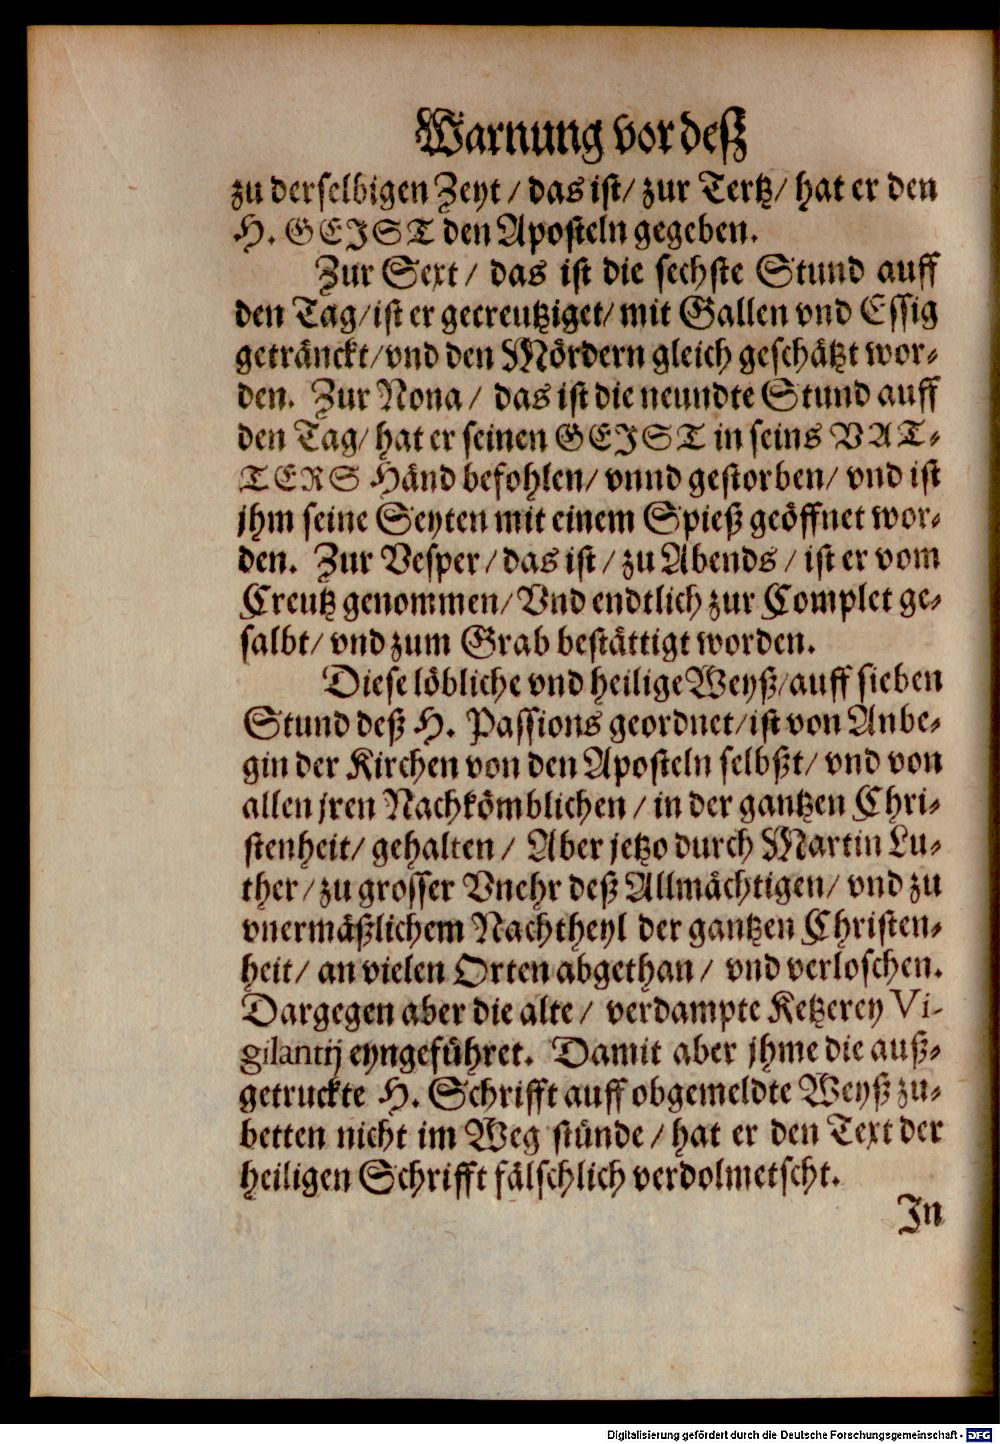 Warnung vor deß
zu derselbigen Zeyt / das ist / zur Tertz / hat er den
H. GEIST den Aposteln gegeben.
Zur Sext / das ist die sechste Stund auff
den Tag / ist er gecreutziget / mit Gallen vnd Essig
geträncket / vnd den Mördern gleich geschätzt wor-
den. Zur Nona / das ist die neundte Stund auff
den Tag / hat er seinen GEIST in seins VAT-
TERS Händ befohlen / vnnd gestorben / vnd ist
jhm seine Seyten mit einem Spieß geöffnet wor-
den. Zur Vesper / das ist / zu Abends / ist er vom
Creutz genommen / Vnd endtlich zur Complet ge-
salbt / vnd zum Grab bestättigt worden.
Diese löbliche vnd heilige Weyß / auff sieben
Stund deß H. Passions geordnet / ist von Anbe-
gin der Kirchen von den Aposteln selbßt / vnd von
allen jren Nachkömblichen / in der gantzen Chri-
stenheit / gehalten / Aber jetzo durch Martin Lu-
ther / zu grosser Vnehr deß Allmächtigen / vnd zu
vnermäßlichem Nachtheyl der gantzen Christen-
heit / an vielen Orten abgethan / vnd verloschen.
Dargegen aber die alte / verdampte Ketzerey Vi-
gilantij eyngeführet. Damit aber jhme die auß-
getruckte H. Schrifft auff obgemeldte Weyß zu-
betten nicht im Weg stünde / hat er den Text der
heiligen Schrifft fälschlich verdolmetscht.
In
Digitalisierung gefördert durch die Deutsche Forschungsgemeinschaft - DFG